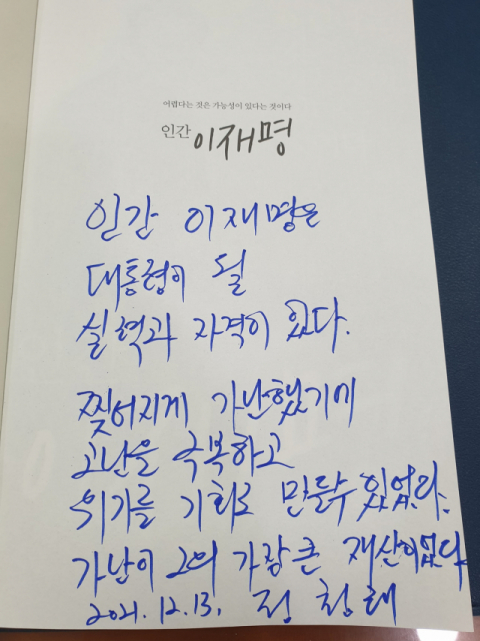 어렵다는 것은 가능성이 있다는 것이다
인간 이재명
인간 이재명은
대통령이 될
실력과 자격이 있다.
찢어지게 가난했기에
고난을 극복하고
위기를 기회로 만들수 있었다.
가난이 그의 가장 큰 재산이었다.
2021. 12. 13. 정청래